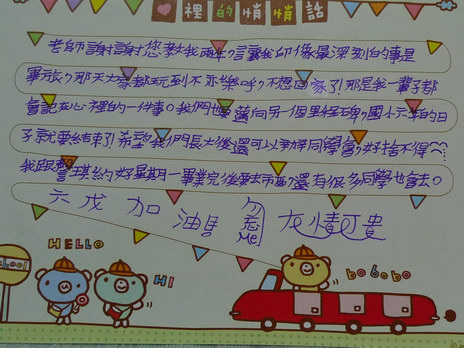 裡的悄悄話
老師謝謝您教我兩年,讓我印像最深刻的事是
畢旅,那天大家都玩到不亦樂呼,不想回家了!那是我一輩子都
會記在心裡的一件事。我們也要邁向另一個里程碑,國小六年的日
子就要結束了!希望我們長大後還可以辦同學會,好捨不得
我跟 琪約好星期一畢業完後要去市 還有很多同學也會去。
六戊加油 勿忘Me 友情可貴
HELLO
HI
bobobo